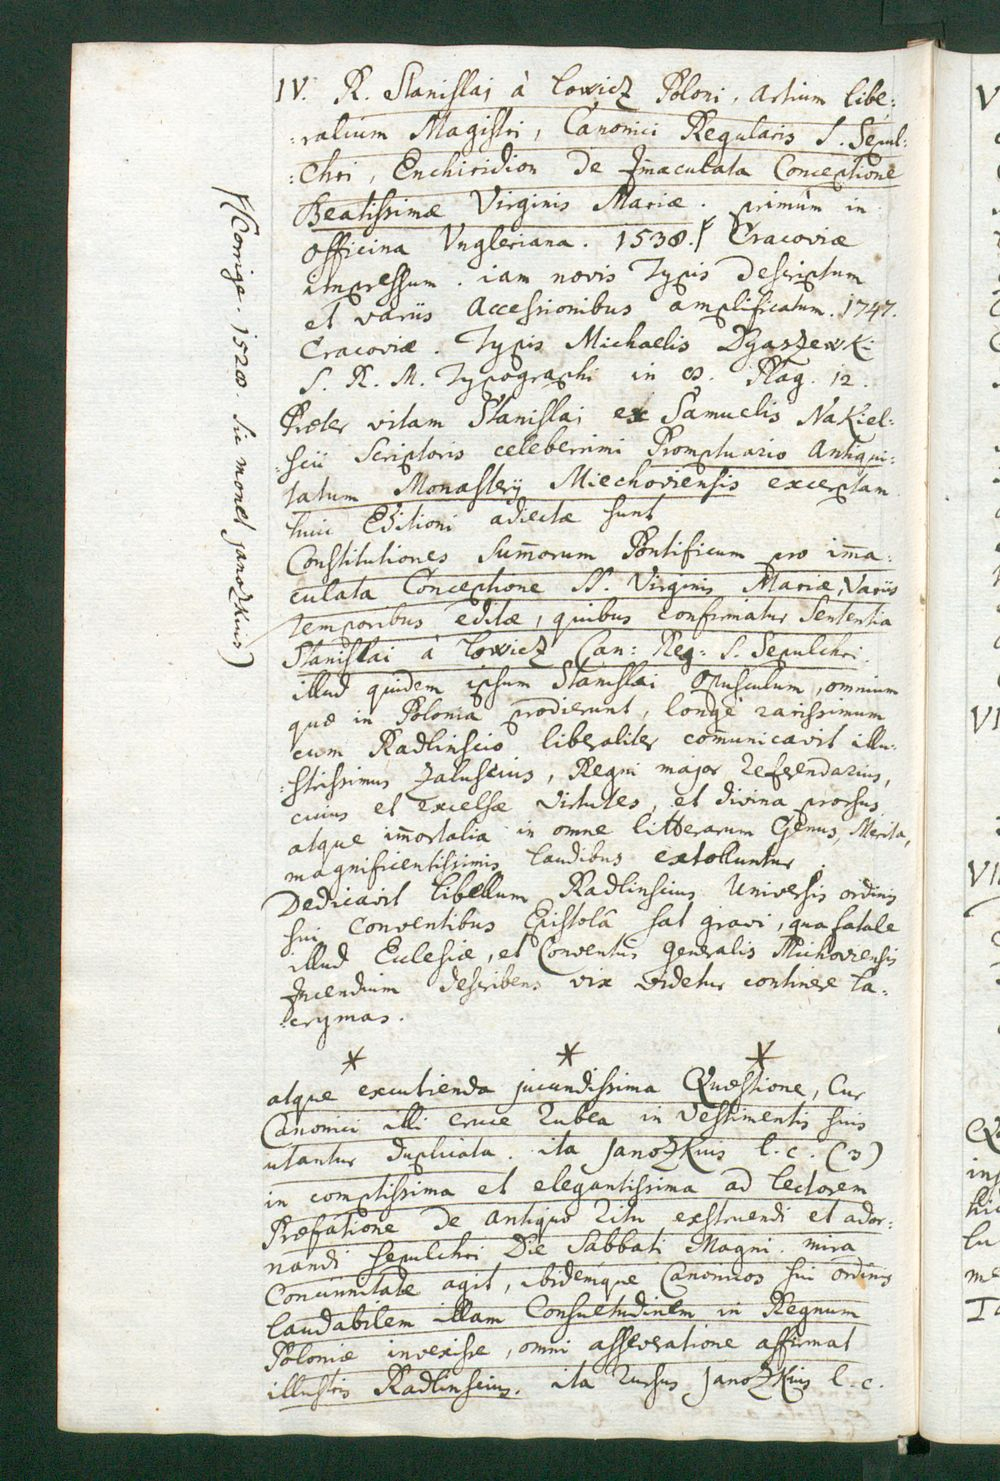 IV. R. Stanislai à Lowicz Poloni, Artium libe:
:ralium Magistri, Canonici Regularis S. Sepul:
:chri, Enchiridion de Im̄aculata Conceptione
Beatissimæ Virginis Mariæ. primùm in
officina Vngleriana. 1538.† Cracoviæ
impressum. iam novis Typis descriptum
et variis Accessionibus amplificatum. 1747.
Cracoviæ. Typis Michaelis Dyaszewski
S. R. M. Typographi in 8. Plag. 12.
Præter vitam Stanislai ex Samuelis Nakiel:
:scii Scriptoris celeberrimi Promptuario Antiqui:
tatum Monasterij Miechoviensis excerptam
huic Editioni adiectæ sunt
Constitutiones Sum̄orum Pontificum pro im̄a:
culata Conceptione SS. Virginis Mariæ, Variis
temporibus editæ, quibus confirmatur Sententia
Stanislai à Lowicz Can: Reg: S. Sepulchri.
illud quidem ipsum Stanislai Opusculum, omnium
quæ in Polonia prodierunt, longè rarissimum
cum Radlinscio liberaliter com̄unicavit illu:
:strissimus Zaluscius, Regni major Referendarius,
cuius et excelsæ virtutes, et divina prorsus
atque im̄ortalia in omne litterarum Genus, Merita,
magnificentissimis laudibus extolluntur.
Dedicavit libellum Radlinscius Universis ordinis
sui Conventibus Epistolâ sat gravi, qua fatale
illud Eclesiæ, et Conventus generalis Michoviensis
Incendium describens vix videtur continere la:
:crymas.
* * *
atque excutienda jucundissima Quæstione, Cur
Canonici illi cruce rubea in Vestimentis suis
utantur duplicata. ita Janozkius l. c. (3)
in comptissima et elegantissima ad lectorem
Præfatione de antiquo ritu exstruendi et ador:
nandi sepulchri Die Sabbati Magni. mira
Concinnitate agit, ibidemque Canonicos sui ordinis
laudabilem illam Consuetudinem in Regnum
Poloniæ invexisse, omni asseveratione affirmat
illustris Radlinscius. ita rursus Janozkius l. c.
†(Corrige. 1528. Sic monet Janozkius)